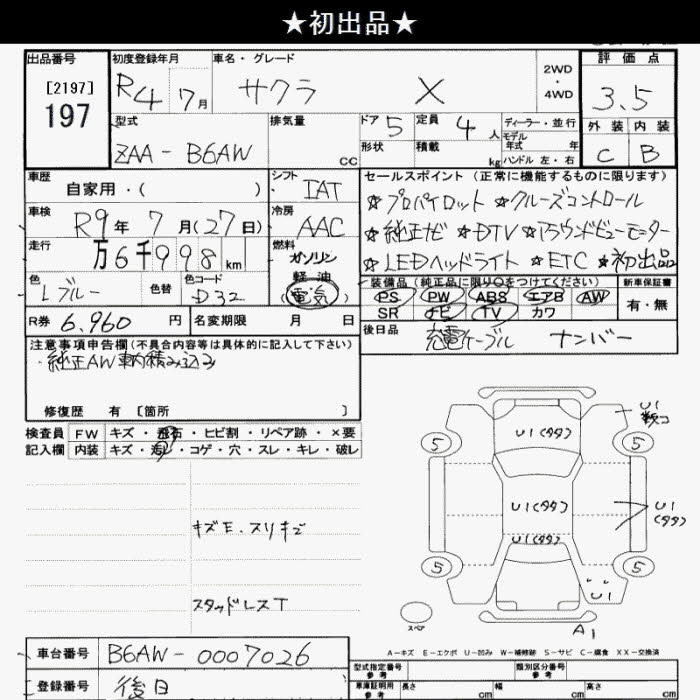 ★初出品★
出品番号 初度登録年月 車名・グレード 評価点
[2197]
197
R4 7月 サクラ X 2WD・4WD 3.5
型式 排気量 ドア 5 定員 4人 ディーラー・並行 外装 内装
ZAA-B6AW cc 形状 積載 kg モデル年式 年 ハンドル 左・右 C B
車歴 シフト セールスポイント(正常に機能するものに限ります)
自家用・( ) IAT ☆プロパイロット ☆クルーズコントロール
車検 R9年 7月(27日) 冷房 AAC ☆純正ナビ ☆DTV ☆アラウンドビューモニター
走行 万6千998km 燃料 ガソリン ☆LEDヘッドライト ☆ETC ★初出品
軽油 装備品(純正品に限り○をつけてください) 新車保証書
色 Lブルー 色替 色コード D32 (電気) PS PW ABS エアB AW 有・無
SR ナビ TV カワ
R券 6,960円 名変期限 月 日 後日品 充電ケーブル ナンバー
注意事項申告欄(不具合内容等は具体的に記入して下さい)
・純正AW車内積み込み
修復歴 有 [箇所 ]
検査員 FW キズ・飛石・ヒビ割・リペア跡・×要
記入欄 内装 キズ・汚レ・コゲ・穴・スレ・キレ・破レ
U1
5 U1(タタ) 5
U1(タタ) U1(タタ)
キズE.スリキズ
U1(タタ)
5 5
U1
スタッドレスT
スペア A1
A-キズ E-エクボ U-凹み W-補修跡 S-サビ C-腐食 XX-交換済
車台番号 B6AW-0007026
登録番号 後日
型式指定番号 参考 類別区分番号 参考
車庫証明用 参考 長さ cm 幅 cm 高さ cm